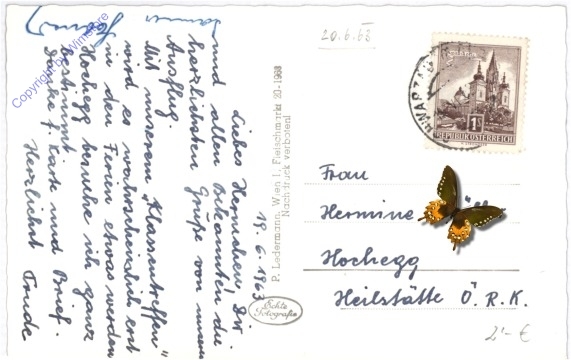 19. 6. 1963
Liebes Herminchen, Dir
und allen Bekannten die
herzlichsten Grüße von unserem
Ausflug.
Mit unserem "Klassentreffen"
wird es wahrscheinlich erst
in den Ferien etwas werden
Hochegg besuche ich ganz
bestimmt.
Danke f. Karte und Brief.
Herzlichst Trude
P. Ledermann, Wien I, Fleischmarkt 20-1968
Nachdruck verboten!
Echte
Fotografie
20.6.63
1S
REPUBLIK ÖSTERREICH
Frau
Hermine
Hochegg
Heilstätte Ö. R. K.
2'- €